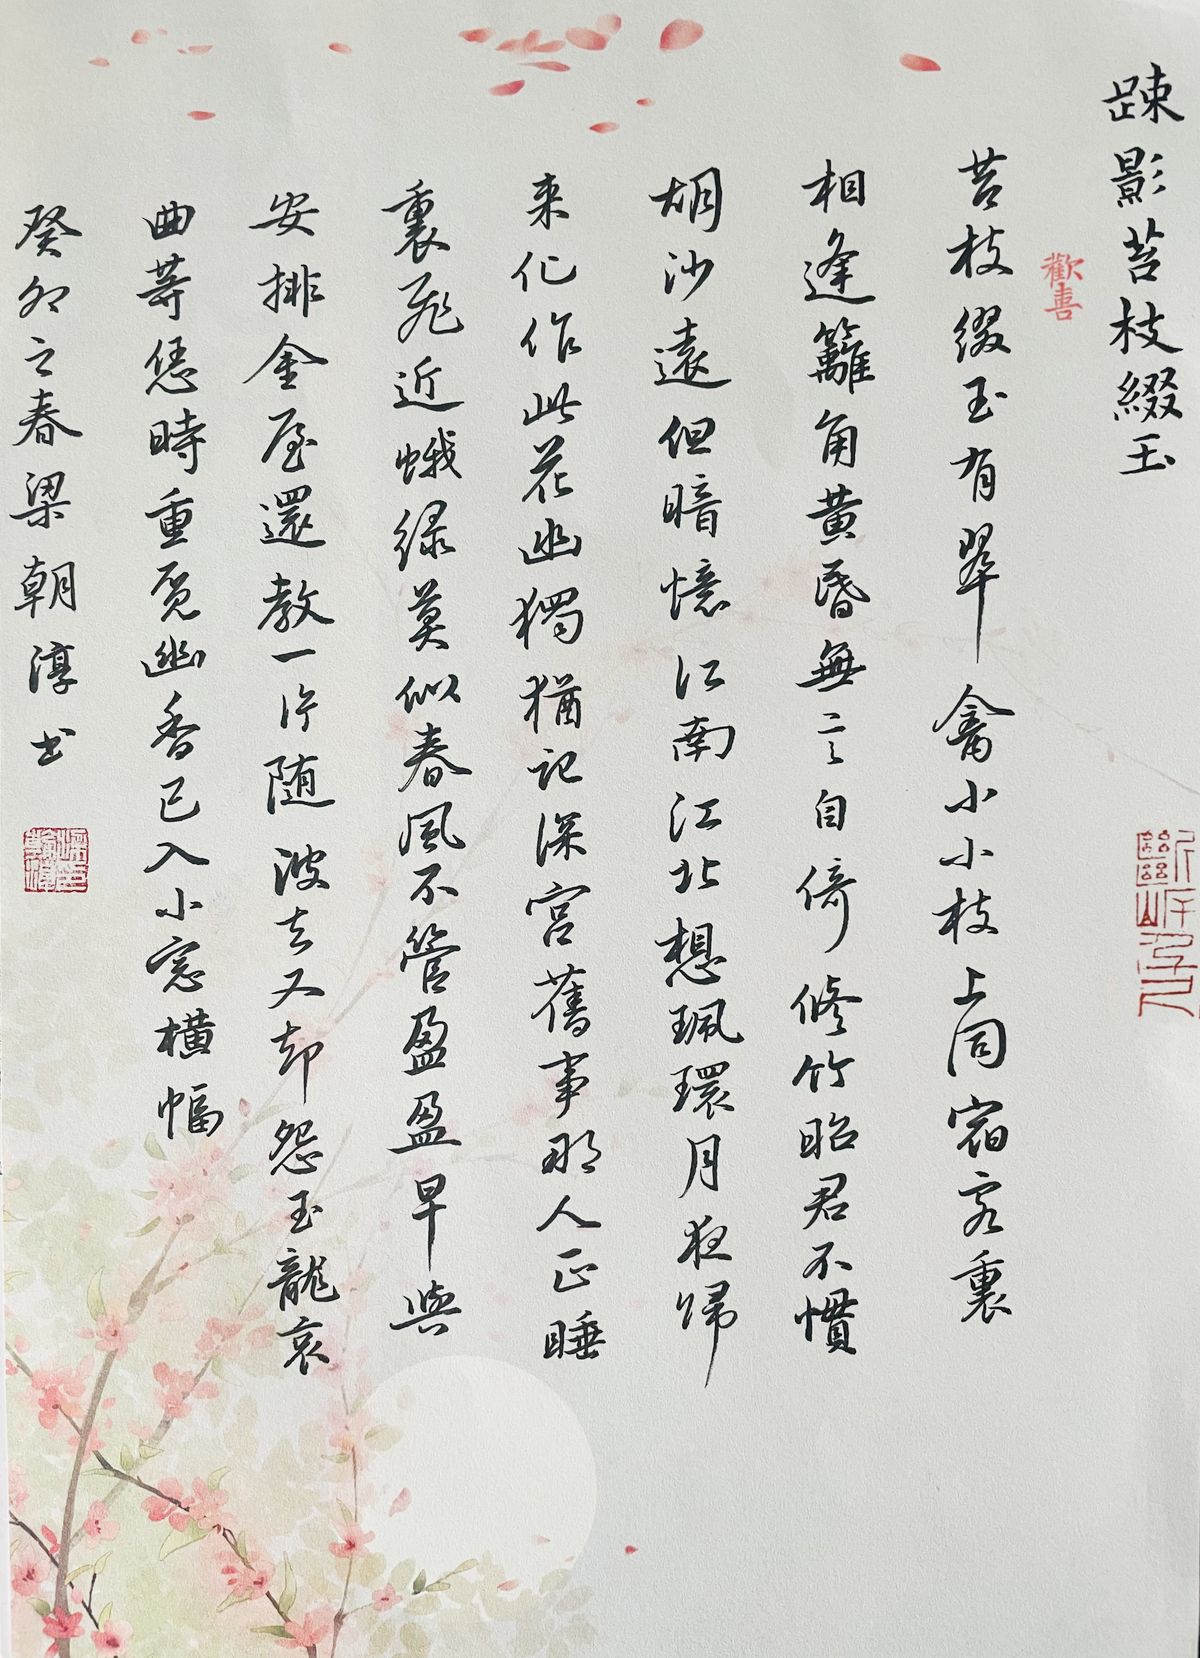 疎影苔枝綴玉
歡喜
苔枝缀玉有翠禽小小枝上同宿客裏
相逢籬角黄昏無言自倚修竹昭君不慣
胡沙遠但暗憶江南江北想珮環月夜歸
来化作此花幽獨猶記深宫舊事那人正睡
裏飛近蛾绿莫似春風不管盈盈早與
安排金屋還教一片随波去又却怨玉龍哀
曲等恁時重覓幽香已入小窓横幅
癸卯之春梁朝淳书